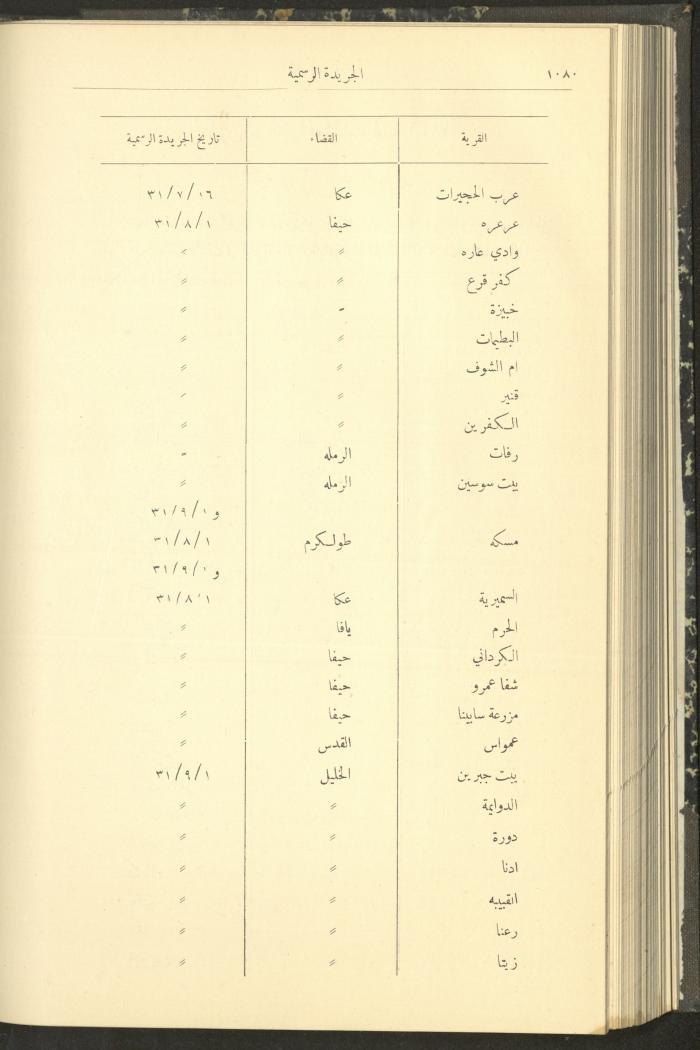 ١٠٨٠ الجريدة الرسمية
القرية القضاء تاريخ الجريدة الرسمية
عرب الحجيرات عكا ٣١/٧/١٦
عرعره حيفا ٣١/٨/١
وادي عاره 〃 〃
كفر قرع 〃 〃
خبيزة 〃 〃
البطيمات 〃 〃
ام الشوف 〃 〃
قنير 〃 〃
الكفرين 〃 〃
رفات الرمله 〃
بيت سوسين الرمله 〃
و ٣١/٩/١
مسكه طولكرم ٣١/٨/١
و ٣١/٩/١
السميرية عكا ٣١/٨/١
الحرم يافا 〃
الكرداني حيفا 〃
شفا عمرو حيفا 〃
مزرعة سابينا حيفا 〃
عمواس القدس 〃
بيت جبرين الخليل ٣١/٩/١
الدوايمة 〃 〃
دورة 〃 〃
ادنا 〃 〃
القبيبه 〃 〃
رعنا 〃 〃
زيتا 〃 〃